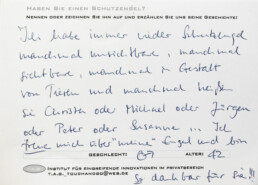 HABEN SIE EINEN SCHUTZENGEL?
NENNEN ODER ZEICHNEN SIE IHN AUF UND ERZÄHLEN SIE UNS SEINE GESCHICHTE!
Ich habe immer wieder Schutzengel
manchmal unsichtbare, manchmal
sichtbare, manchmal in Gestalt
von Tieren und manchmal heißen
sie Christa oder Michael oder Jürgen
oder Peter oder Susanne ... Ich
freue mich über "meine" Engel und bin
GESCHLECHT: ALTER: 42
INSTITUT FÜR EINGREIFENDE INNOVATIONEN IM PRIVATBEREICH
so dankbar für sie!!!